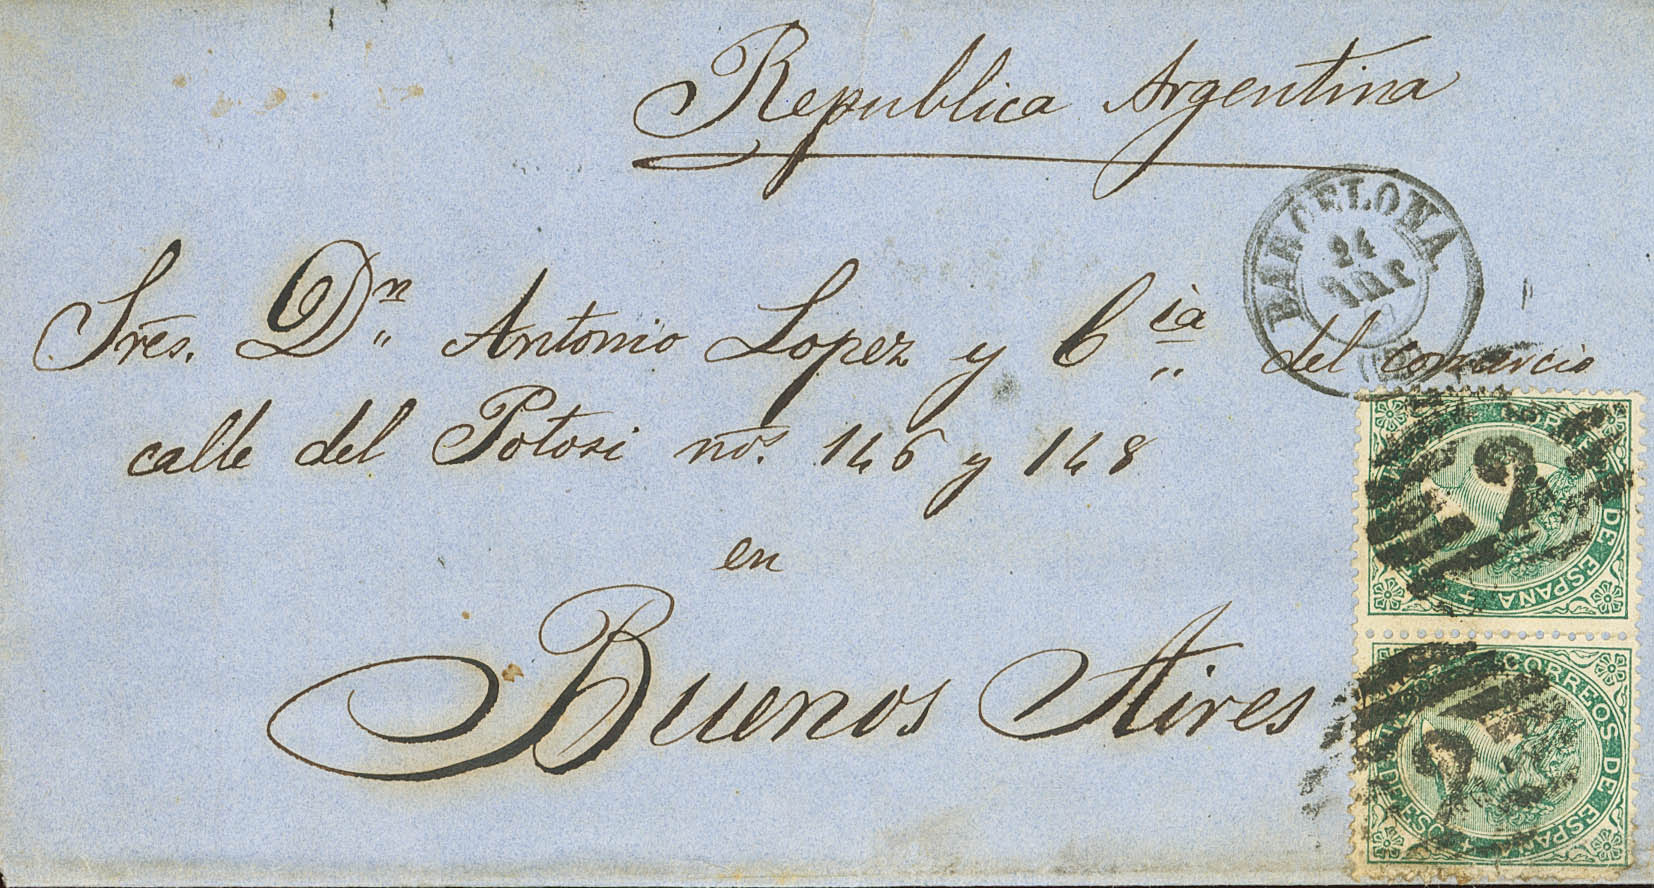 Republica Argentina
BARCELONA
24
Sres. Dn. Antonio Lopez y Cia. del comercio
calle del Potosi nos. 146 y 148
en
Buenos Aires
2
DE ESPAÑA
2
CORREOS DE ESPAÑA